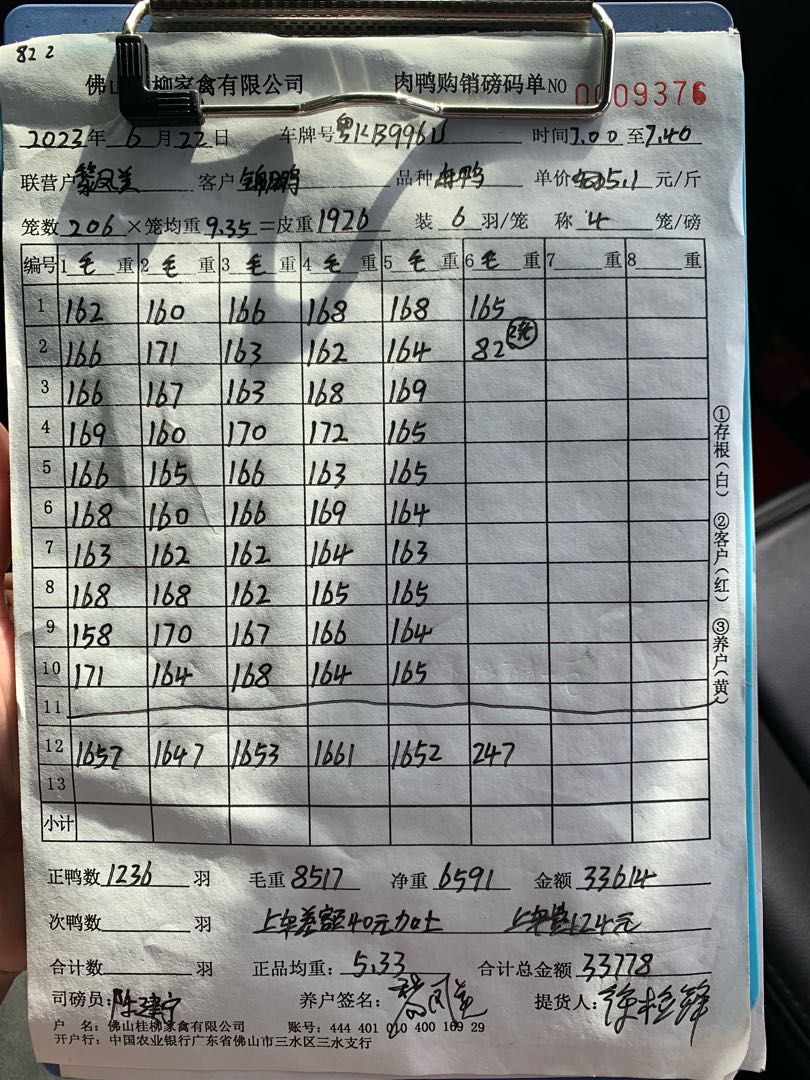 82 2
佛山桂柳家禽有限公司 肉鸭购销磅码单 NO 0009376
2023年 6月 22日 车牌号 时间 7.00 至 7.40
联营户 客户 品种 单价 5.1 元/斤
笼数 206 ×笼均重 9.35 =皮重 1926 装 6 羽/笼 称 4 笼/磅
编号 1 毛 重 2 毛 重 3 毛 重 4 毛 重 5 毛 重 6 毛 重 7 重 8 重
1 162 160 166 168 168 165
2 166 171 163 162 164 82
3 166 167 163 168 169
4 169 160 170 172 165
5 166 165 166 163 165
6 168 160 166 169 164
7 163 162 162 164 163
8 168 168 162 165 165
9 158 170 167 166 164
10 171 164 168 164 165
11
12 1657 1647 1653 1661 1652 247
13
小计
正鸭数 1236 羽 毛重 8517 净重 6591 金额 33614
次鸭数 羽 上车差额40元加上 上车124元
合计数 羽 正品均重: 5.33 合计总金额 33778
司磅员: 陈建宁 养户签名: 提货人:
户 名: 佛山桂柳家禽有限公司 账号: 444 401 010 400 169 29
开户行: 中国农业银行广东省佛山市三水区三水支行
①存根(白) ②客户(红) ③养户(黄)